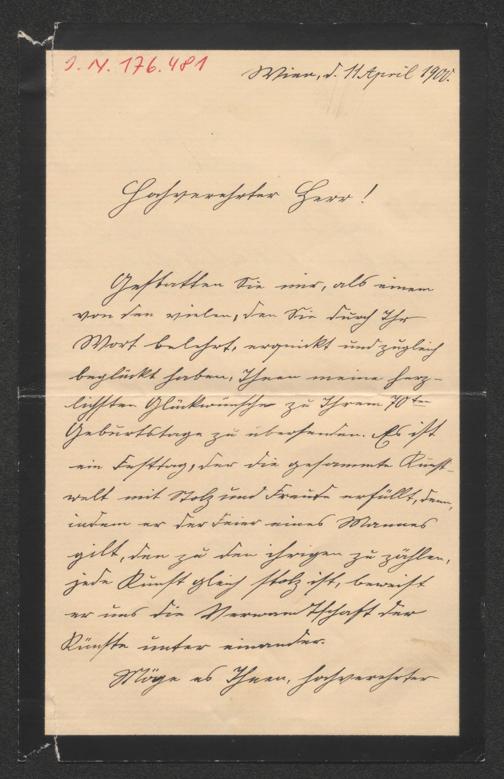 J. N. 176.481
Wien, d. 11 April 1900.
Hochverehrter Herr!
Gestatten Sie mir, als einem
von den vielen, den Sie durch Ihr
Wort belehrt, erquickt und zugleich
beglückt haben, Ihnen meine herz-
lichsten Glückwünsche zu Ihrem 70ten
Geburtstage zu übersenden. Es ist
ein Festtag, der die gesammte Kunst-
welt mit Stolz und Freude erfüllt, denn,
indem er der Feier eines Mannes
gilt, den zu den ihrigen zu zählen,
jede Kunst gleich stolz ist, beweist
er uns die Verwandtschaft der
Künste unter einander.
Möge es Ihnen, hochverehrter